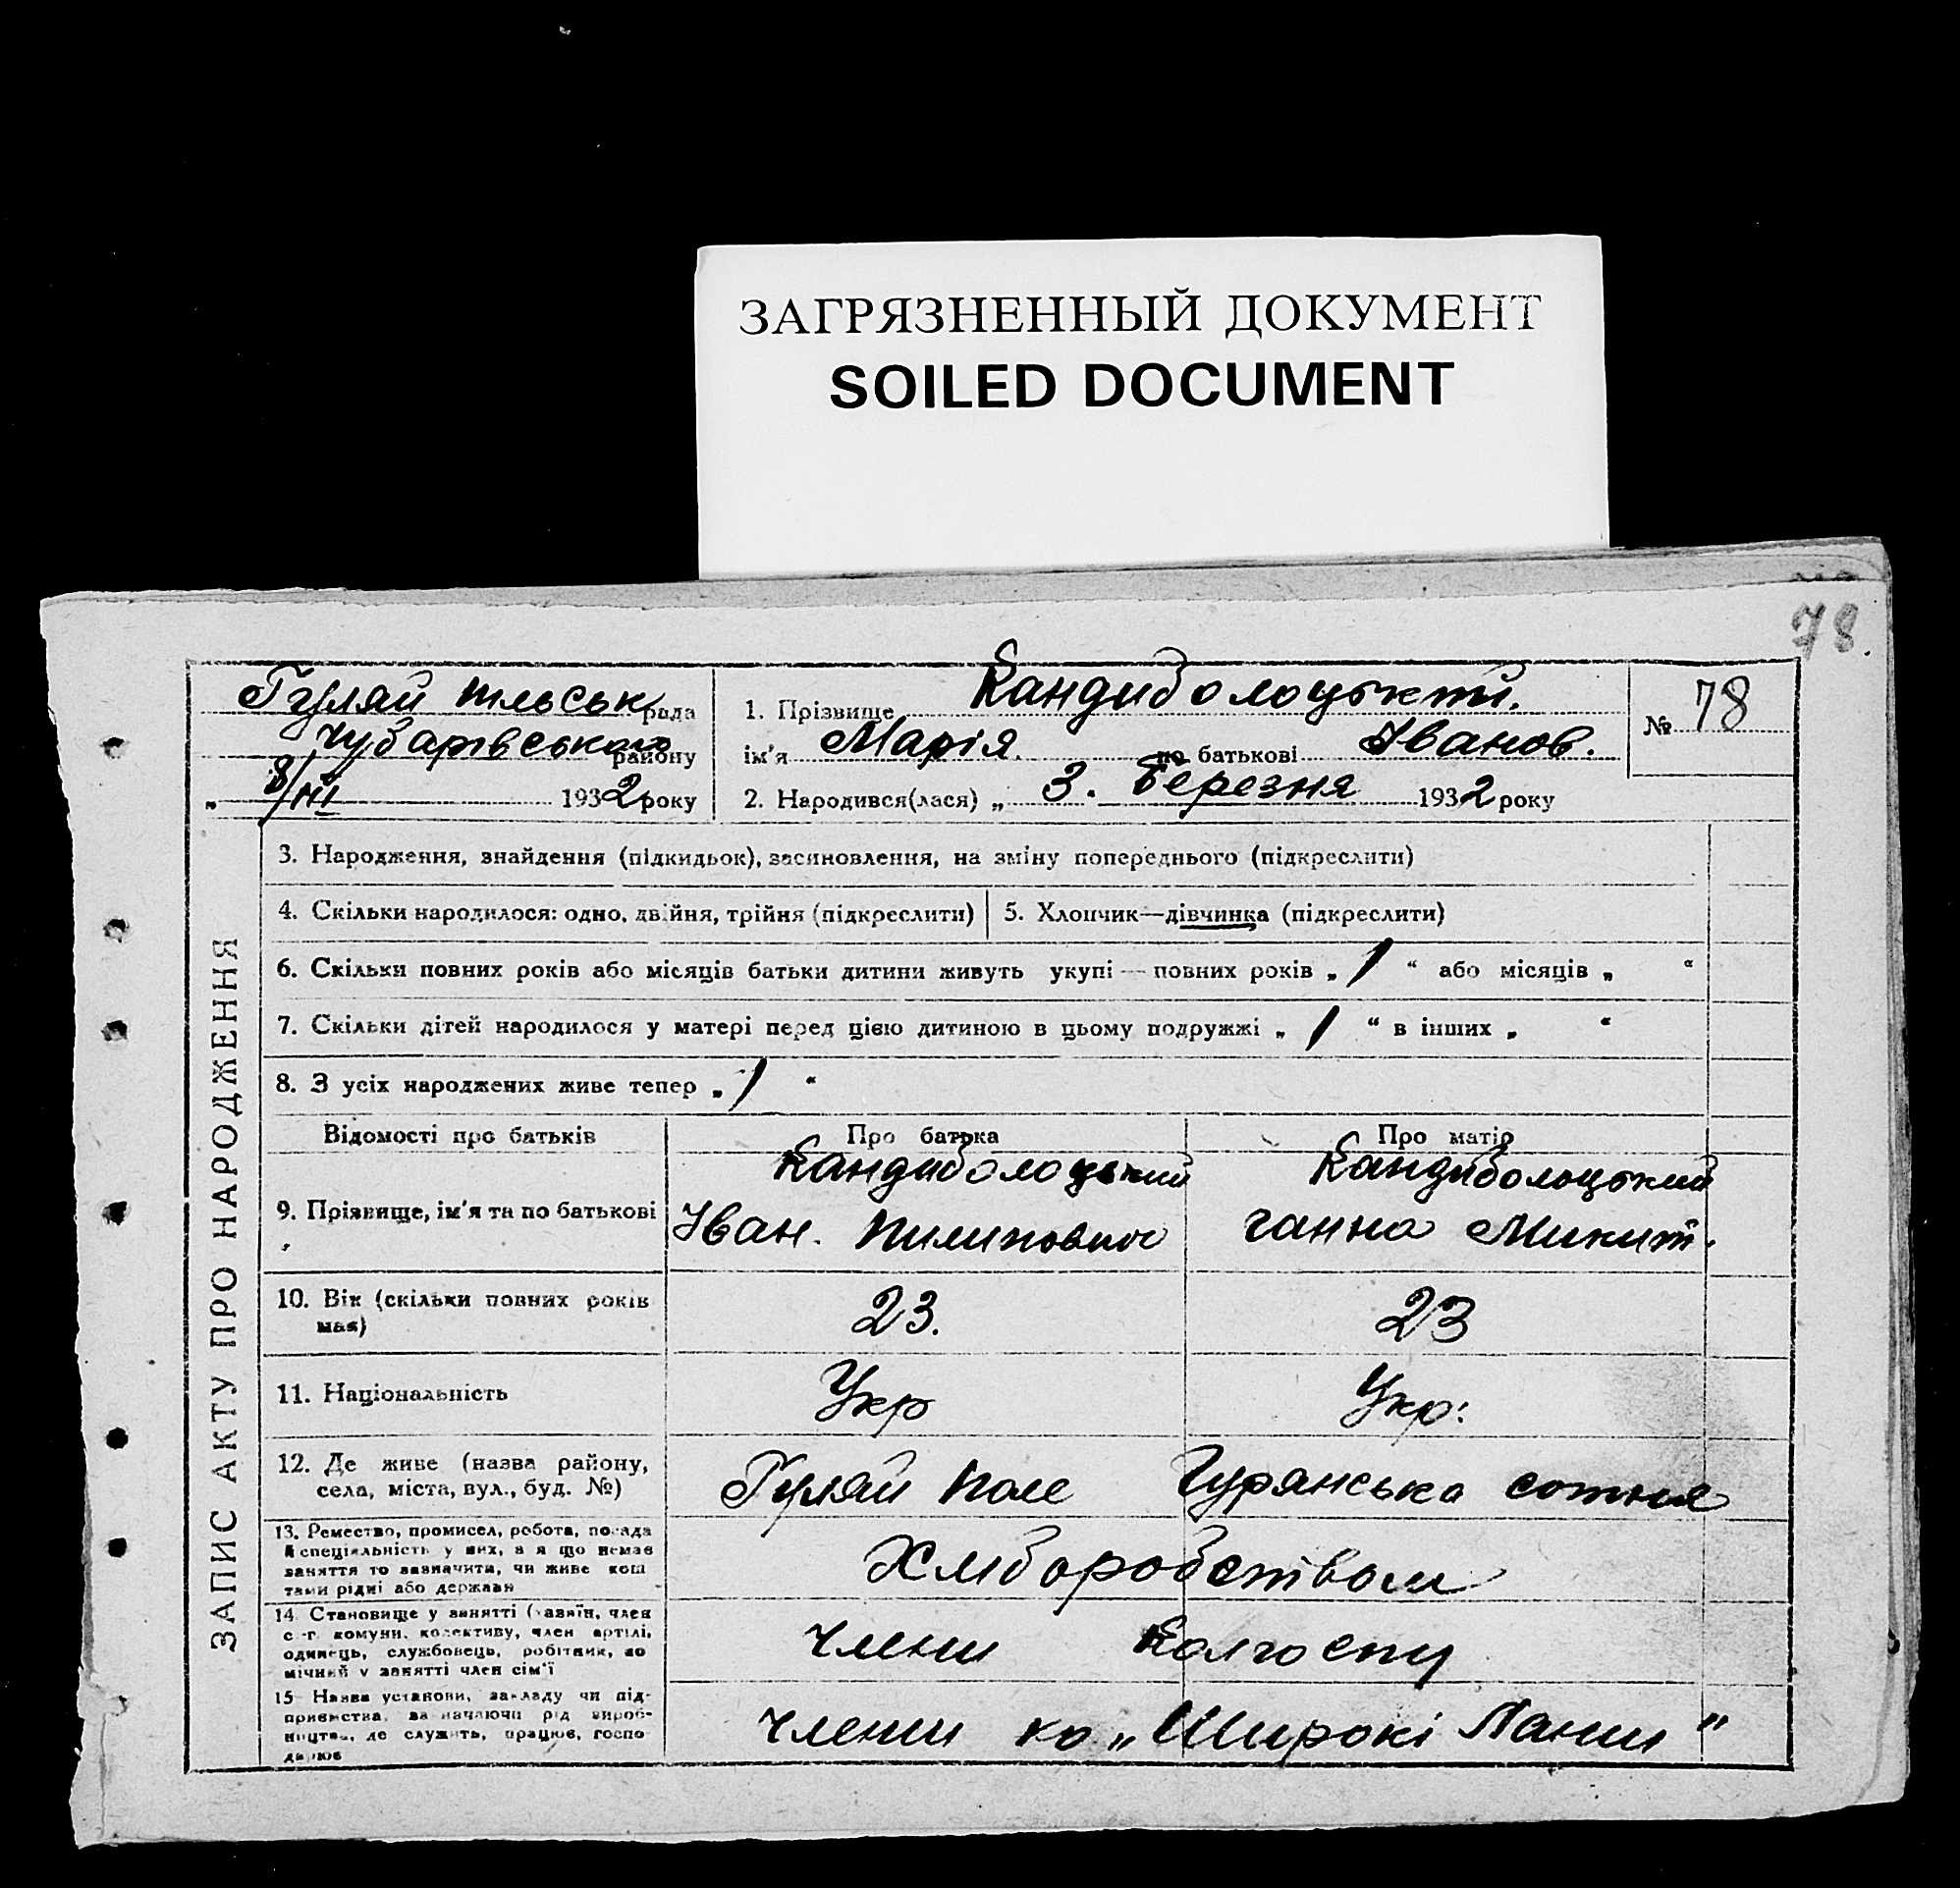 ЗАГРЯЗНЕННЫЙ ДОКУМЕНТ
SOILED DOCUMENT
78.
Гуляй пільськ рада
Чубарівського району
„ 8/III 1932 року
1. Прізвище Кандиболоцький.
ім'я Марія. по батькові Іванов.
2. Народився(лася) „ 3. Березня 1932 року
№ 78
ЗАПИС АКТУ ПРО НАРОДЖЕННЯ
3. Народження, знайдення (підкидьок), засиновлення, на зміну попереднього (підкреслити)
4. Скільки народилося: одно, двійня, трійня (підкреслити)
5. Хлопчик—дівчинка (підкреслити)
6. Скільки повних років або місяців батьки дитини живуть укупі — повних років „ / “ або місяців „ “
7. Скільки дітей народилося у матері перед цією дитиною в цьому подружжі „ / “ в інших „ “
8. З усіх народжених живе тепер „ / “
Відомості про батьків
Про батька
Про матір
9. Прізвище, ім'я та по батькові
Кандиболоцький
Іван. Пилипович
Кандиболоцький
Ганна Микит.
10. Вік (скільки повних років
має)
23.
23
11. Національність
Укр
Укр.
12. Де живе (назва району,
села, міста, вул., буд. №)
Гуляй Поле Гурянська сотня
13. Ремество, промисел, робота, посада
й спеціяльність у них, а я що немає
заняття то зазначити, чи живе кош
тами рідні або держави
Хліборобством
14. Становище у занятті (хазяїн, член
с.-г. комуни, колективу, член артілі,
одинець, службовець, робітник, до
мічний у занятті член сім'ї
члени колгоспу
15 Назва установи, закладу чи під-
приємства, зазначаючи рід вироб-
ництва, де служить, працює, госпо
дарює
члени ко „Широкі Лани"